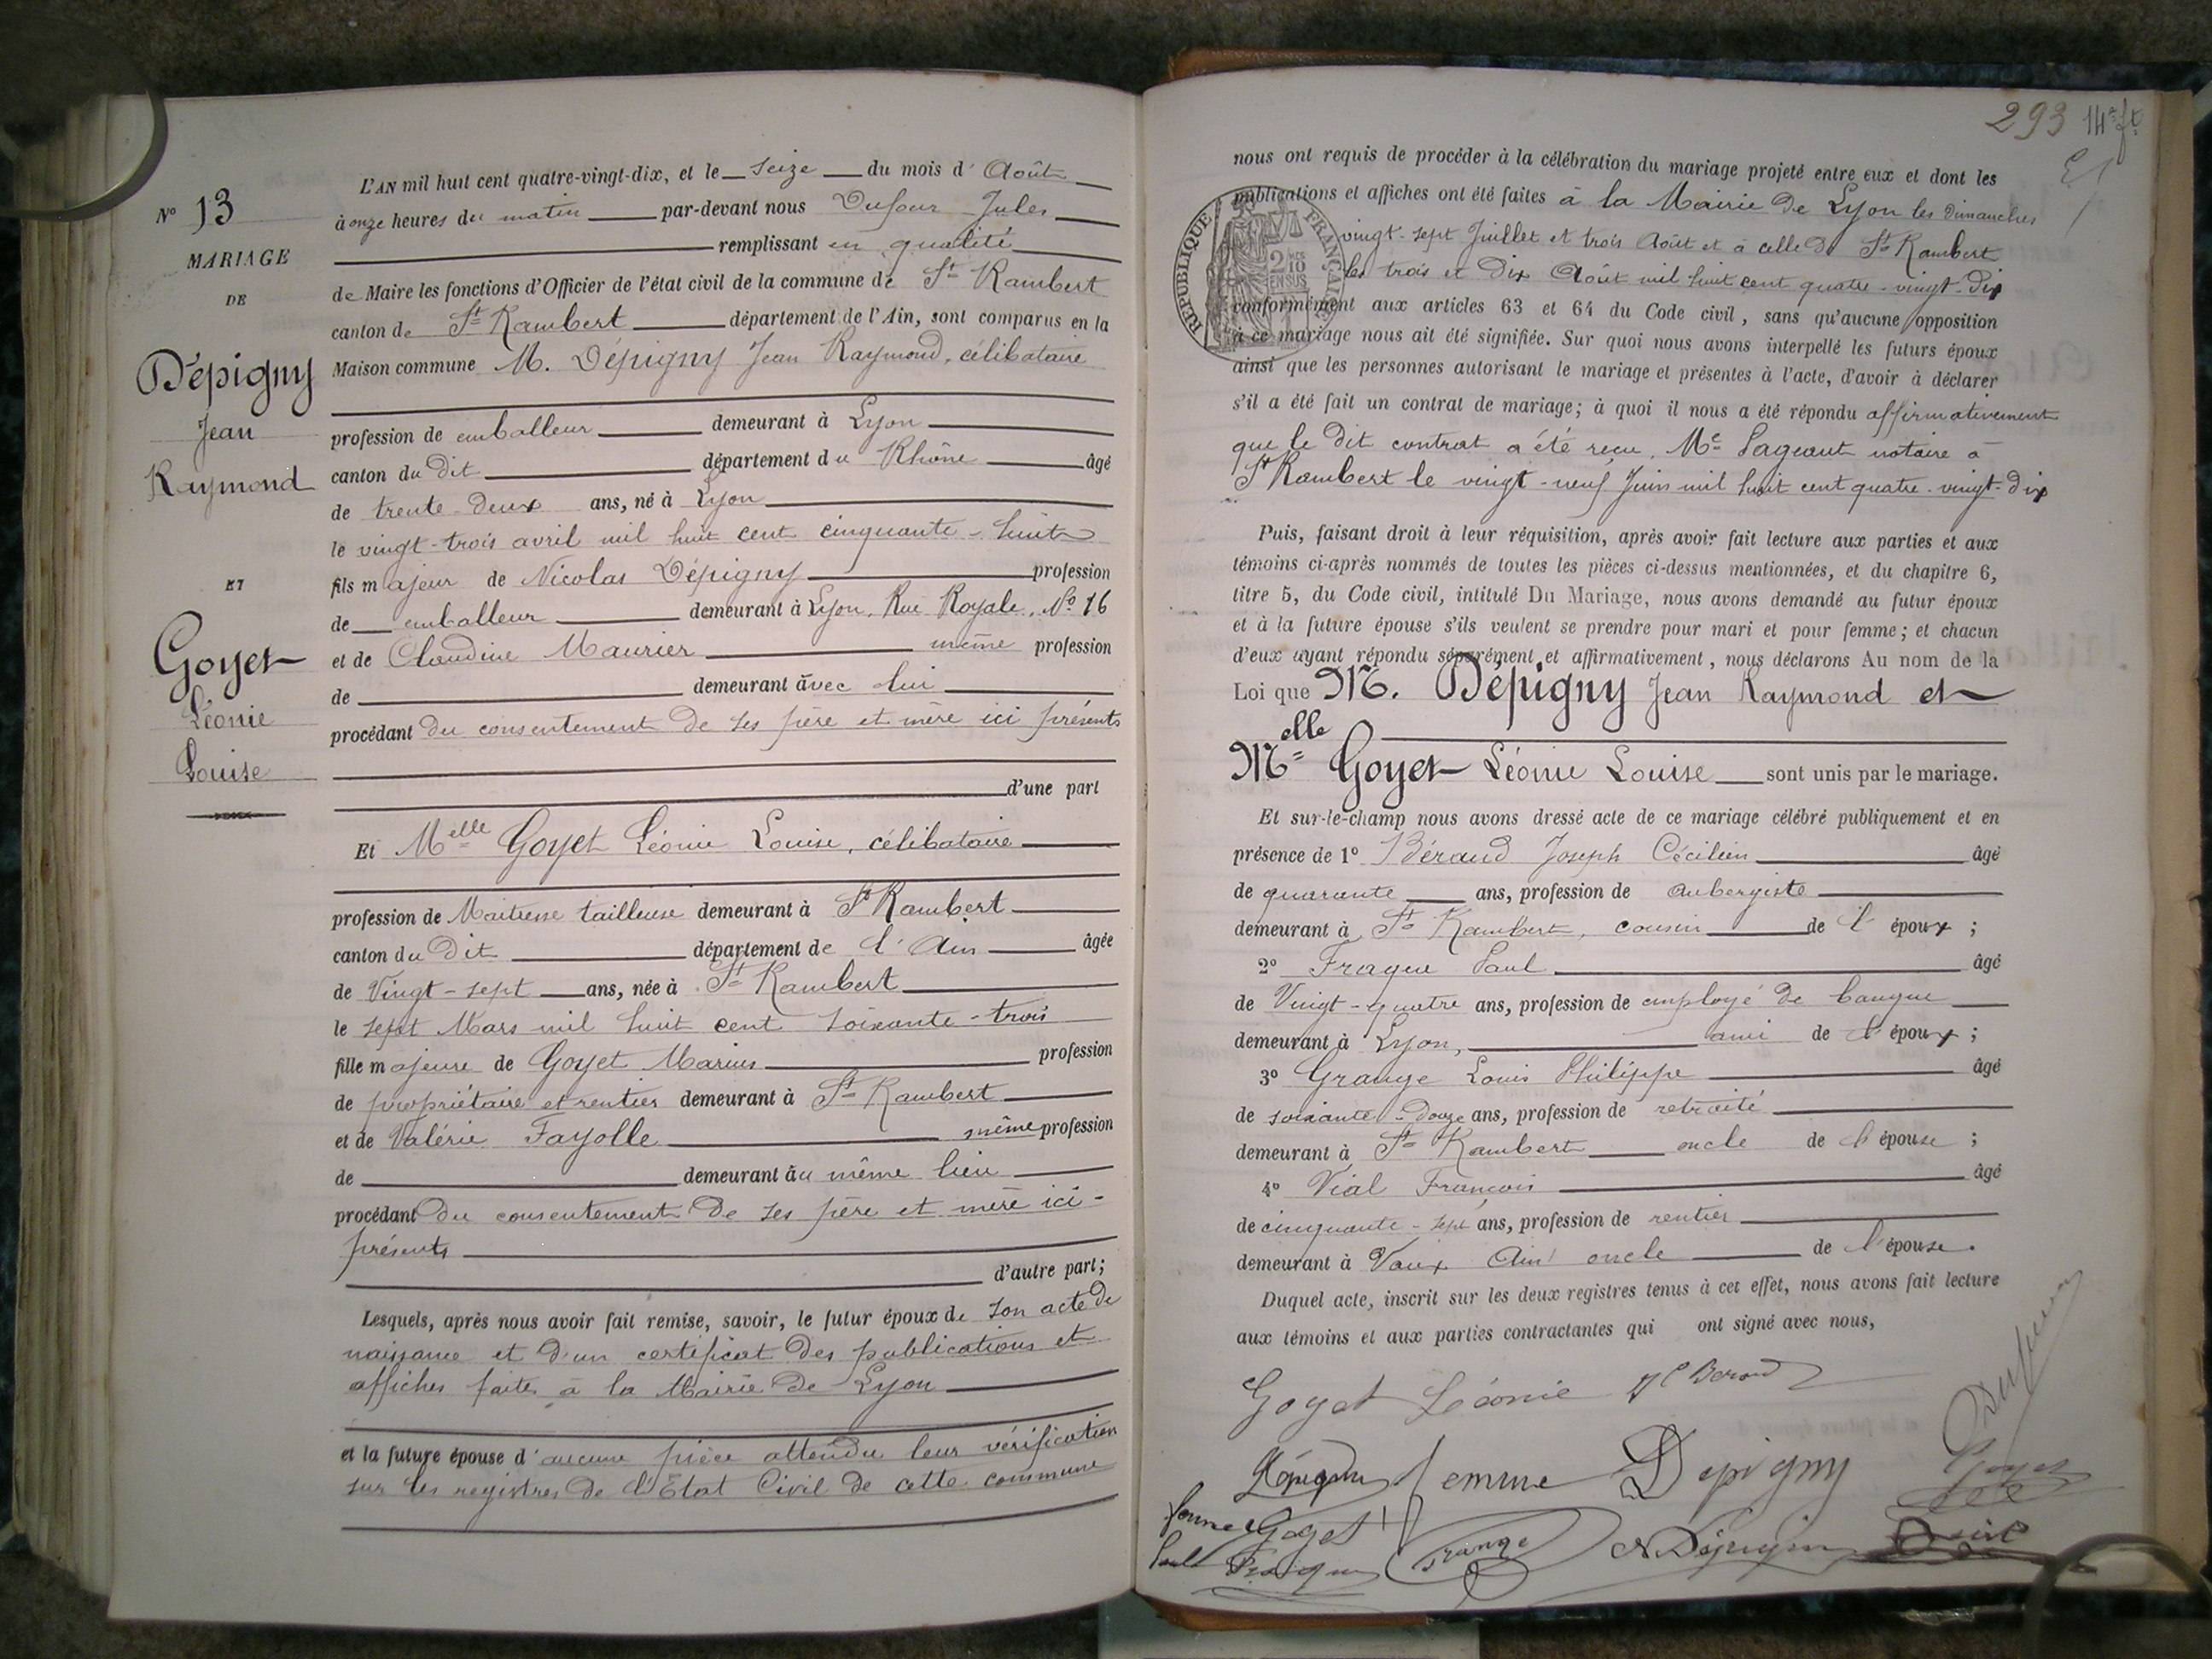 N° 13
MARIAGE
DE
Dépigny
Jean
Raymond
ET
Goyet
Léonie
Louise
L'AN mil huit cent quatre-vingt-dix, et le seize du mois d'Août
à onze heures du matin par-devant nous Dufour Jules
remplissant en qualité
de Maire les fonctions d'Officier de l'état civil de la commune de St Rambert
canton de St Rambert département de l'Ain, sont comparus en la
Maison commune M. Dépigny Jean Raymond, célibataire
profession de emballeur demeurant à Lyon
canton du dit département du Rhône âgé
de trente-deux ans, né à Lyon
le vingt-trois avril mil huit cent cinquante-huit
fils majeur de Nicolas Dépigny profession
de emballeur demeurant à Lyon, Rue Royale, No 16
et de Claudine Maurier même profession
de demeurant avec lui
procédant du consentement de ses père et mère ici présents
d'une part
Et Melle Goyet Léonie Louise, célibataire
profession de Maitresse tailleuse demeurant à St Rambert
canton du dit département de l'Ain âgée
de Vingt-sept ans, née à St Rambert
le sept Mars mil huit cent soixante-trois
fille majeure de Goyet Marius profession
de propriétaire et rentier demeurant à St Rambert
et de Valérie Fayolle même profession
de demeurant au même lieu
procédant du consentement de ses père et mère ici-
présents
d'autre part;
Lesquels, après nous avoir fait remise, savoir, le futur époux de son acte de
naissance et d'un certificat des publications et
affiches faites à la Mairie de Lyon
et la future épouse d'aucune pièce attendu leur vérification
sur les registres de l'Etat Civil de cette commune
293 14
nous ont requis de procéder à la célébration du mariage projeté entre eux et dont les
publications et affiches ont été faites à la Mairie de Lyon les dimanches
vingt-sept Juillet et trois Août et à celle de St Rambert
les trois et dix Août mil huit cent quatre-vingt-dix
conformément aux articles 63 et 64 du Code civil, sans qu'aucune opposition
à ce mariage nous ait été signifiée. Sur quoi nous avons interpellé les futurs époux
ainsi que les personnes autorisant le mariage et présentes à l'acte, d'avoir à déclarer
s'il a été fait un contrat de mariage; à quoi il nous a été répondu affirmativement
que le dit contrat a été reçu, Me notaire à
St Rambert le vingt-neuf Juin mil huit cent quatre-vingt-dix
RÉPUBLIQUE FRANÇAISE
2 10
EN SUS
Puis, faisant droit à leur réquisition, après avoir fait lecture aux parties et aux
témoins ci-après nommés de toutes les pièces ci-dessus mentionnées, et du chapitre 6,
titre 5, du Code civil, intitulé Du Mariage, nous avons demandé au futur époux
et à la future épouse s'ils veulent se prendre pour mari et pour femme; et chacun
d'eux ayant répondu séparément et affirmativement, nous déclarons Au nom de la
Loi que M. Dépigny Jean Raymond et
Melle Goyet Léonie Louise sont unis par le mariage.
Et sur-le-champ nous avons dressé acte de ce mariage célébré publiquement et en
présence de 1° Béraud Joseph Cécilien âgé
de quarante ans, profession de aubergiste
demeurant à St Rambert, cousin de l'époux;
2° Fragne Paul âgé
de Vingt-quatre ans, profession de employé de banque
demeurant à Lyon, ami de l'époux;
3° Grange Louis Philippe âgé
de soixante-douze ans, profession de retraité
demeurant à St Rambert oncle de l'épouse;
4° Vial François âgé
de cinquante-sept ans, profession de rentier
demeurant à Vaux Ain oncle de l'épouse.
Duquel acte, inscrit sur les deux registres tenus à cet effet, nous avons fait lecture
aux témoins et aux parties contractantes qui ont signé avec nous,
Goyet Léonie Beraud
Dufour
Dépigny femme Dépigny
Goyet
femme Goyet
Paul Fragne Grange N Dépigny Vial